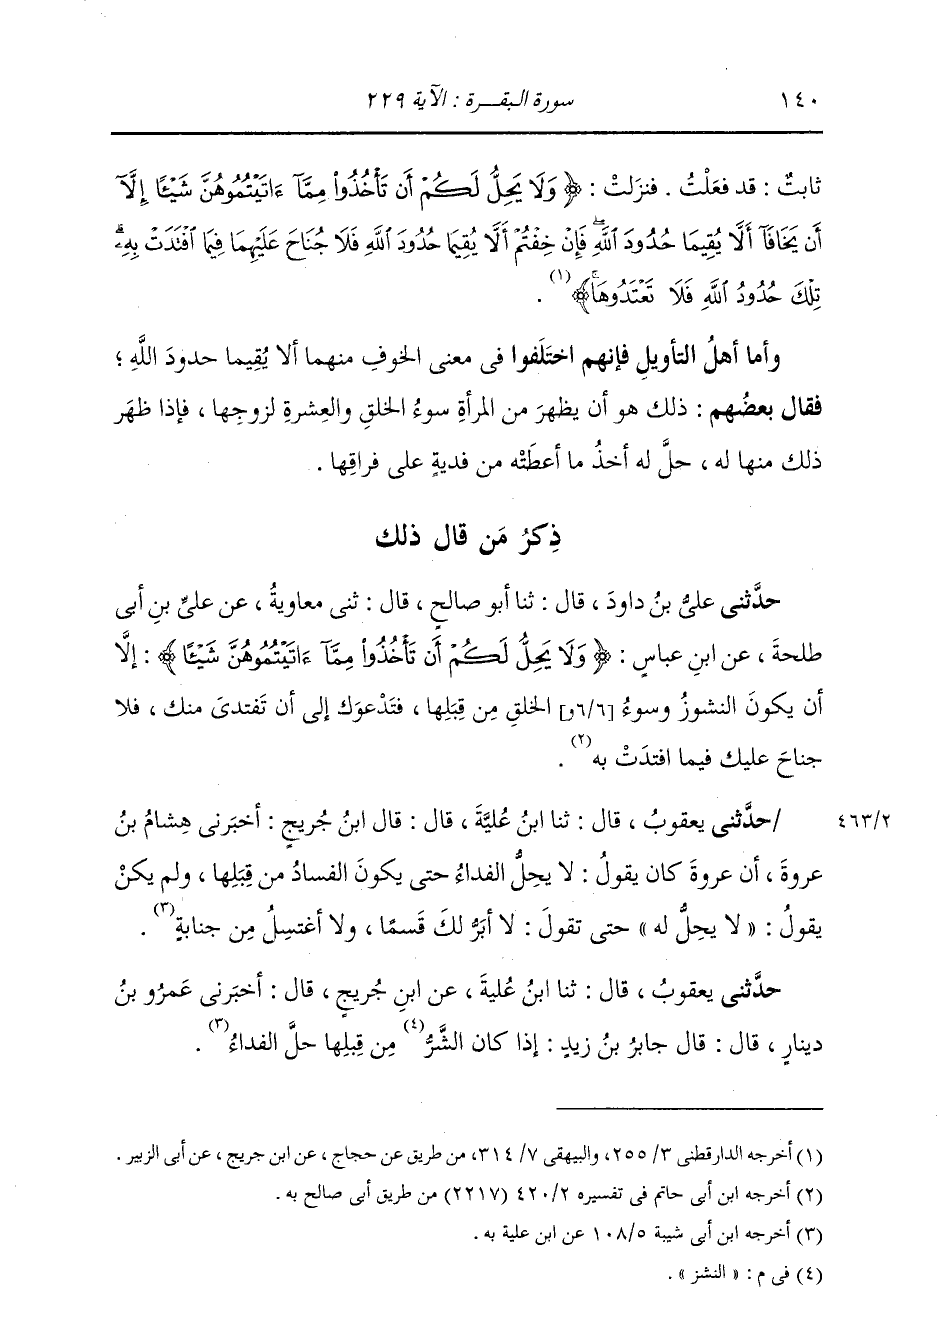 ١٤٠ سورة البقــرة : الآية ٢٢٩
ثابتٌ : قد فعَلْتُ . فنزلتْ : ﴿ وَلَا يَحِلُّ لَكُمْ أَن تَأْخُذُوا۟ مِمَّآ ءَاتَيْتُمُوهُنَّ شَيْـًٔا إِلَّآ
أَن يَخَافَآ أَلَّا يُقِيمَا حُدُودَ ٱللَّهِۖ فَإِنْ خِفْتُمْ أَلَّا يُقِيمَا حُدُودَ ٱللَّهِ فَلَا جُنَاحَ عَلَيْهِمَا فِيمَا ٱفْتَدَتْ بِهِۦۗ
تِلْكَ حُدُودُ ٱللَّهِ فَلَا تَعْتَدُوهَاۚ﴾(١) .
وأما أهلُ التأويلِ فإنهم اختَلَفوا فى معنى الخوفِ منهما ألا يُقيما حدودَ اللَّهِ ؛
فقال بعضُهم : ذلك هو أن يظهرَ من المرأةِ سوءُ الخلقِ والعِشرةِ لزوجِها ، فإذا ظهَر
ذلك منها له ، حلَّ له أخذُ ما أعطَتْه من فديةٍ على فراقِها .
ذِكرُ مَن قال ذلك
حدَّثنى علىُّ بنُ داودَ ، قال : ثنا أبو صالحٍ ، قال : ثنى معاويةُ ، عن علىِّ بنِ أبى
طلحةَ ، عن ابنِ عباسٍ : ﴿ وَلَا يَحِلُّ لَكُمْ أَن تَأْخُذُوا۟ مِمَّآ ءَاتَيْتُمُوهُنَّ شَيْـًٔا ﴾ : إلَّا
أن يكونَ النشوزُ وسوءُ [٦/٦و] الخلقِ مِن قِبَلِها ، فتَدْعوَك إلى أن تَفتدىَ منك ، فلا
جناحَ عليك فيما افتدَتْ به(٢) .
٤٦٣/٢ /حدَّثنى يعقوبُ ، قال : ثنا ابنُ عُليَّةَ ، قال : قال ابنُ جُريجٍ : أخبَرنى هِشامُ بنُ
عروةَ ، أن عروةَ كان يقولُ : لا يحِلُّ الفداءُ حتى يكونَ الفسادُ من قِبَلِها ، ولم يكنْ
يقولُ : « لا يحلُّ له » حتى تقولَ : لا أبَرُّ لكَ قَسمًا ، ولا أغتسِلُ مِن جنابةٍ(٣) .
حدَّثنى يعقوبُ ، قال : ثنا ابنُ عُليةَ ، عن ابنِ جُريجٍ ، قال : أخبَرنى عَمرُو بنُ
دينارٍ ، قال : قال جابرُ بنُ زيدٍ : إذا كان الشَّرُّ(٤) مِن قِبلِها حلَّ الفداءُ(٣) .
(١) أخرجه الدارقطنى ٣/ ٢٥٥، والبيهقى ٧/ ٣١٤، من طريق عن حجاج ، عن ابن جريج ، عن أبى الزبير .
(٢) أخرجه ابن أبى حاتم فى تفسيره ٤٢٠/٢ (٢٢١٧) من طريق أبى صالح به .
(٣) أخرجه ابن أبى شيبة ١٠٨/٥ عن ابن علية به .
(٤) فى م : « النشز » .